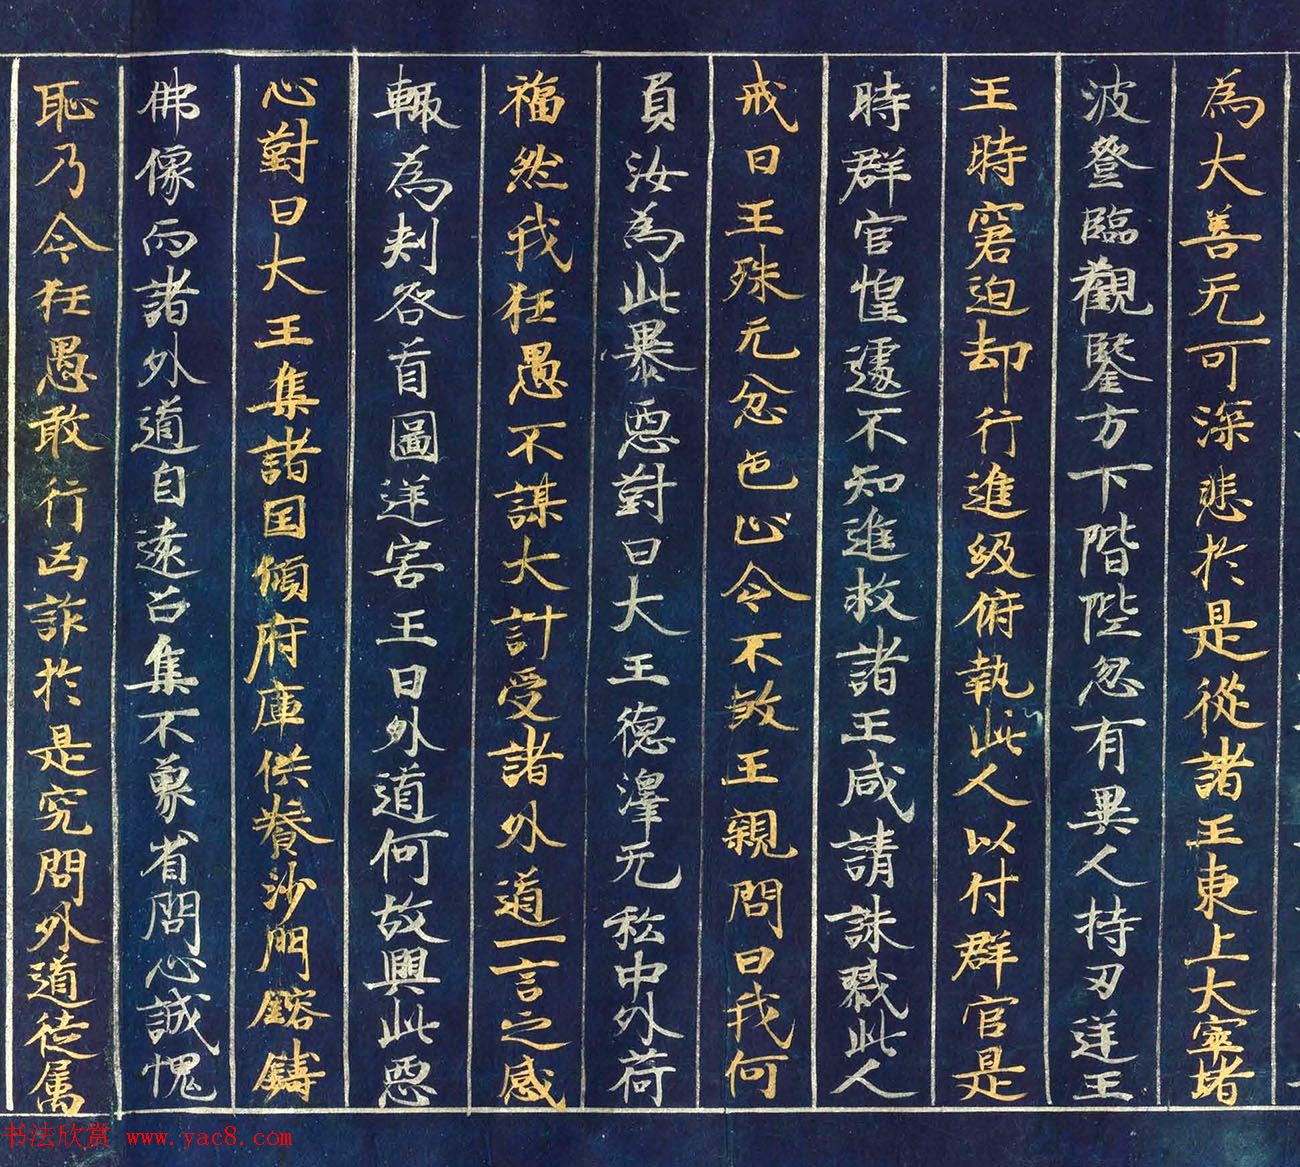 為大善无可深悲於是從諸王東上大窣堵
波登臨觀鑒方下階陛忽有異人持刃逆王
王時窘迫却行進級俯執此人以付群官是
時群官惶遽不知進救諸王咸請誅戮此人
戒日王殊无忿色止令不煞王親問曰我何
負汝為此暴惡對曰大王德澤无私中外荷
福然我狂愚不謀大計受諸外道一言之惑
輒為刺客首圖逆害王曰外道何故興此惡
心對曰大王集諸国傾府庫供養沙門鎔鑄
佛像而諸外道自遠召集不蒙省問心誠愧
恥乃令狂愚敢行凶詐於是究問外道徒属
书法欣赏 www.yac8.com